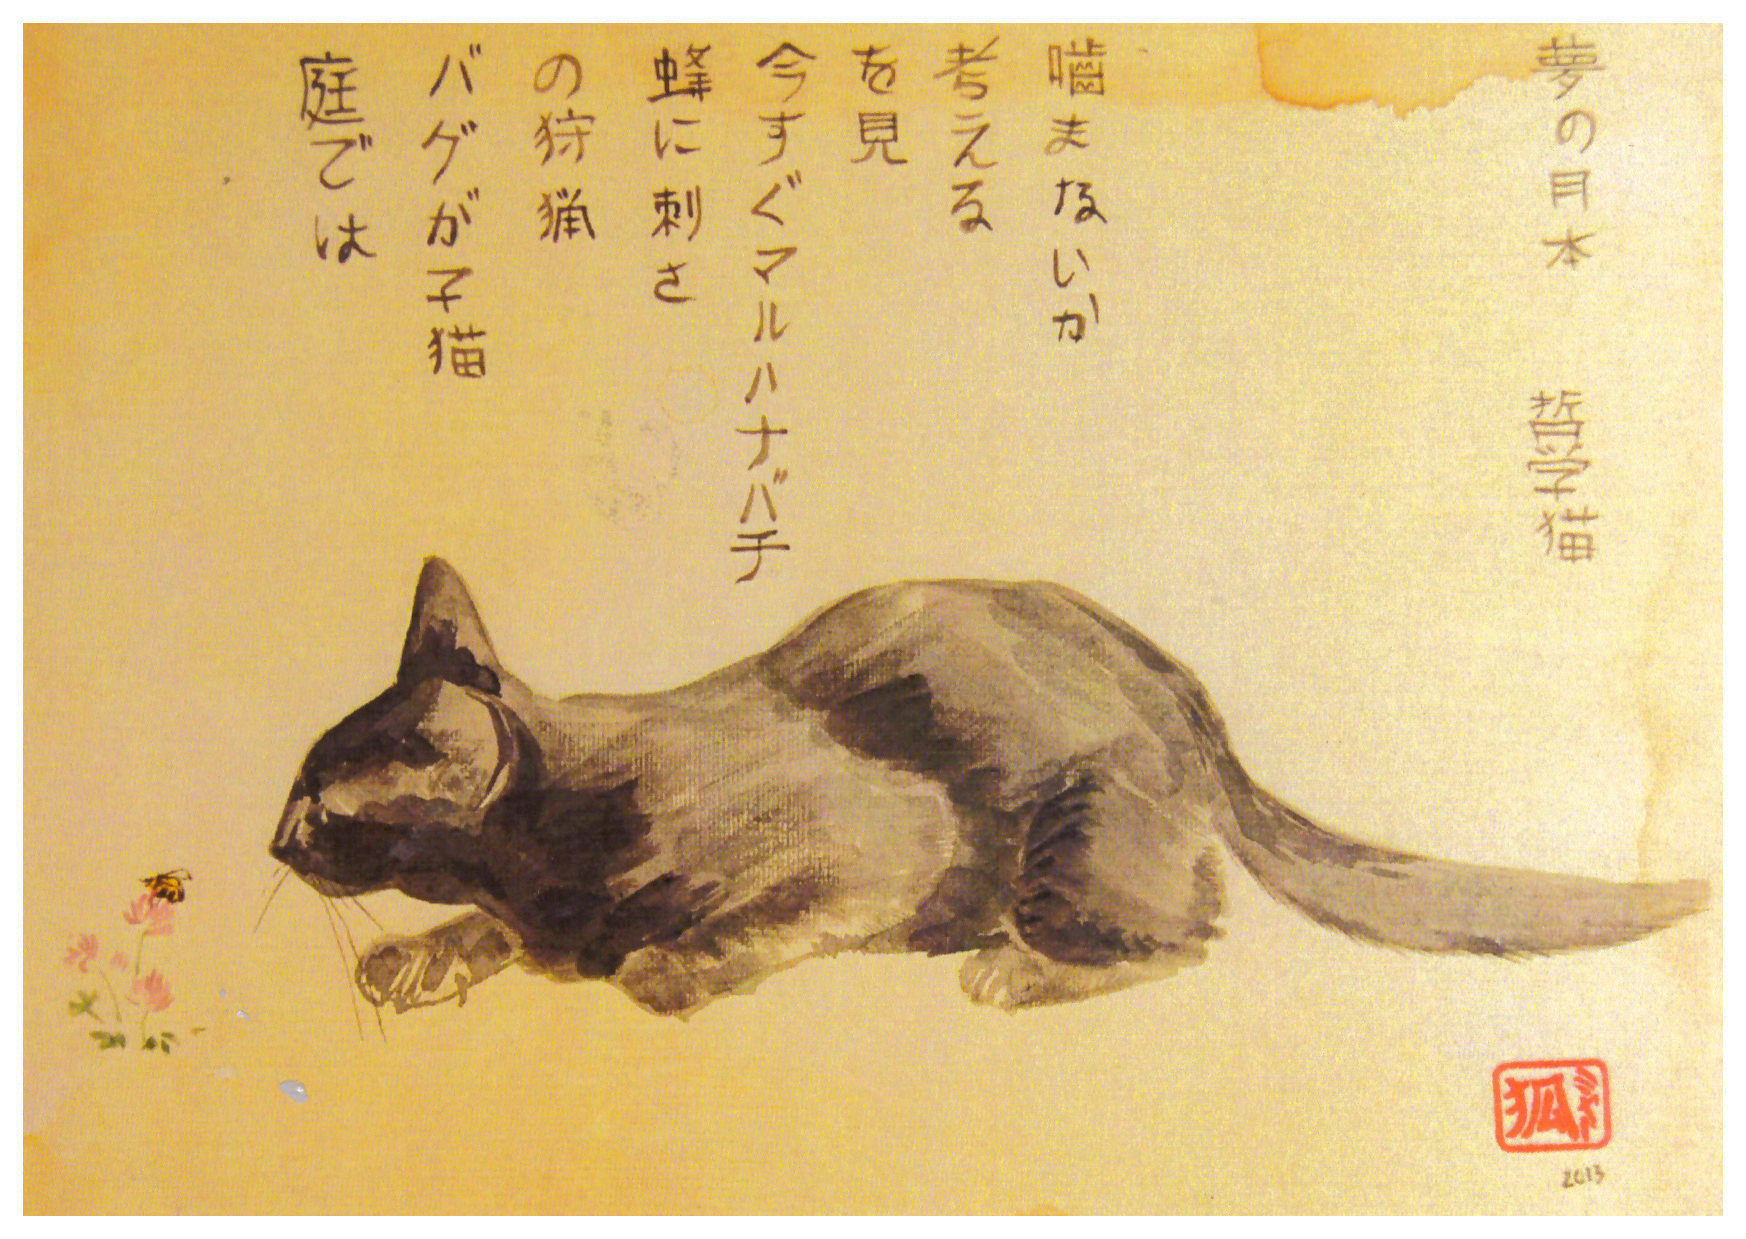 夢の月本 哲学猫
噛まないか
考える
を見
今すぐマルハナバチ
蜂に刺さ
の狩猟
バグが子猫
庭では
狐
2013